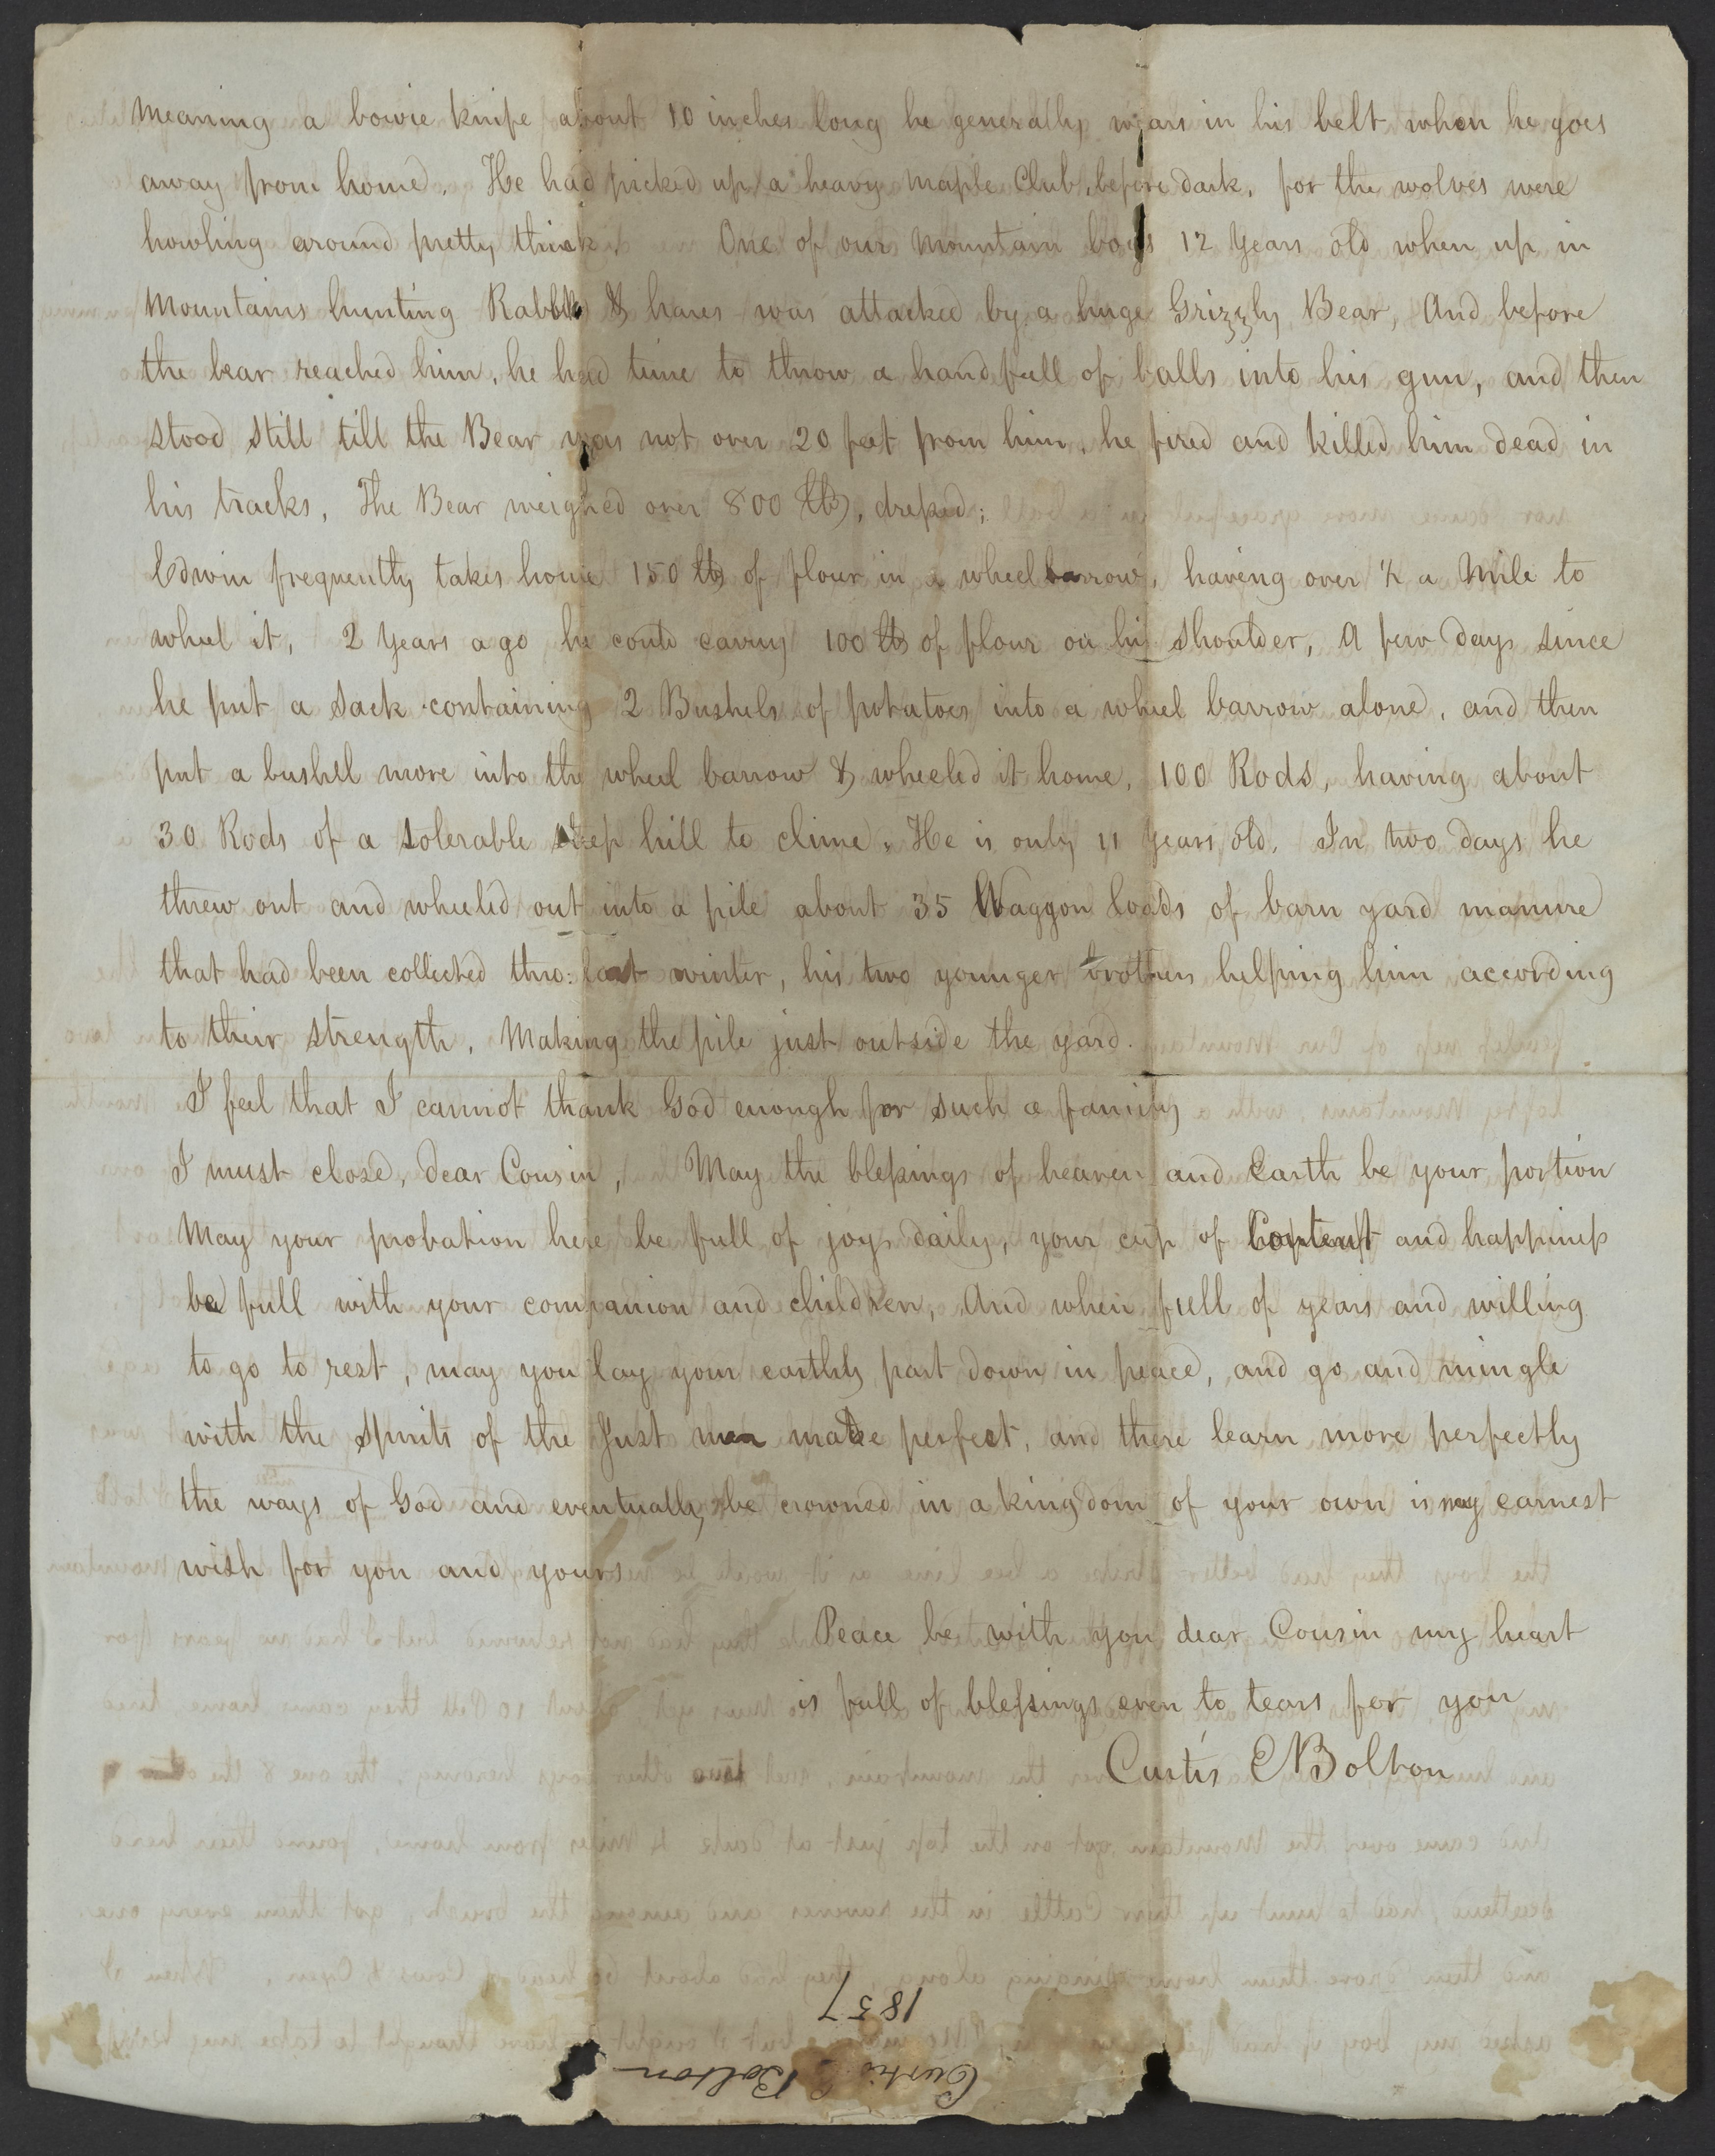 meaning a bowie knife about 10 inches long he generally wears in his belt when he goes
away from home. He had picked up a heavy maple Club, before dark, for the wolves were
howling around pretty thick. One of our mountain boys 12 Years old when up in
Mountains hunting Rabbits & hares was attacked by a huge Grizzly Bear, And before
the bear reached him, he had time to throw a handfull of balls into his gun, and then
stood still till the Bear was not over 20 feet from him, he fired and killed him dead in
his tracks, The Bear weighed over 800 lbs, dressed;
Edwin frequently takes home 150 lbs of flour in a wheel barrow, having over ½ a Mile to
wheel it, 2 Years ago he could carry 100 lbs of flour on his shoulder, A few days since
he put a sack containing 2 Bushels of potatoes into a wheel barrow alone, and then
put a bushel more into the wheel barrow & wheeled it home, 100 Rods, having about
30 Rods of a tolerable steep hill to clime. He is only 11 Years old. In two days he
threw out and wheeled out into a pile about 35 Waggon loads of barn yard manure
that had been collected thro: last winter, his two younger brothers helping him according
to their strength, Making the pile just outside the yard.
I feel that I cannot thank God enough for such a family
I must close, dear Cousin, May the blessings of heaven and Earth be your portion
May your probation here be full of joys daily, your cup of Content and happiness
be full with your companion and children, And when full of years and willing
to go to rest, may you lay your earthly part down in peace, and go and mingle
with the spirits of the Just men made perfect, and there learn more perfectly
the ways of God and eventually be crowned in a kingdom of your own is my earnest
wish for you and yours
Peace be with you dear Cousin my heart
is full of blessings even to tears for you
Curtis E Bolton
1857
Curtis E Bolton